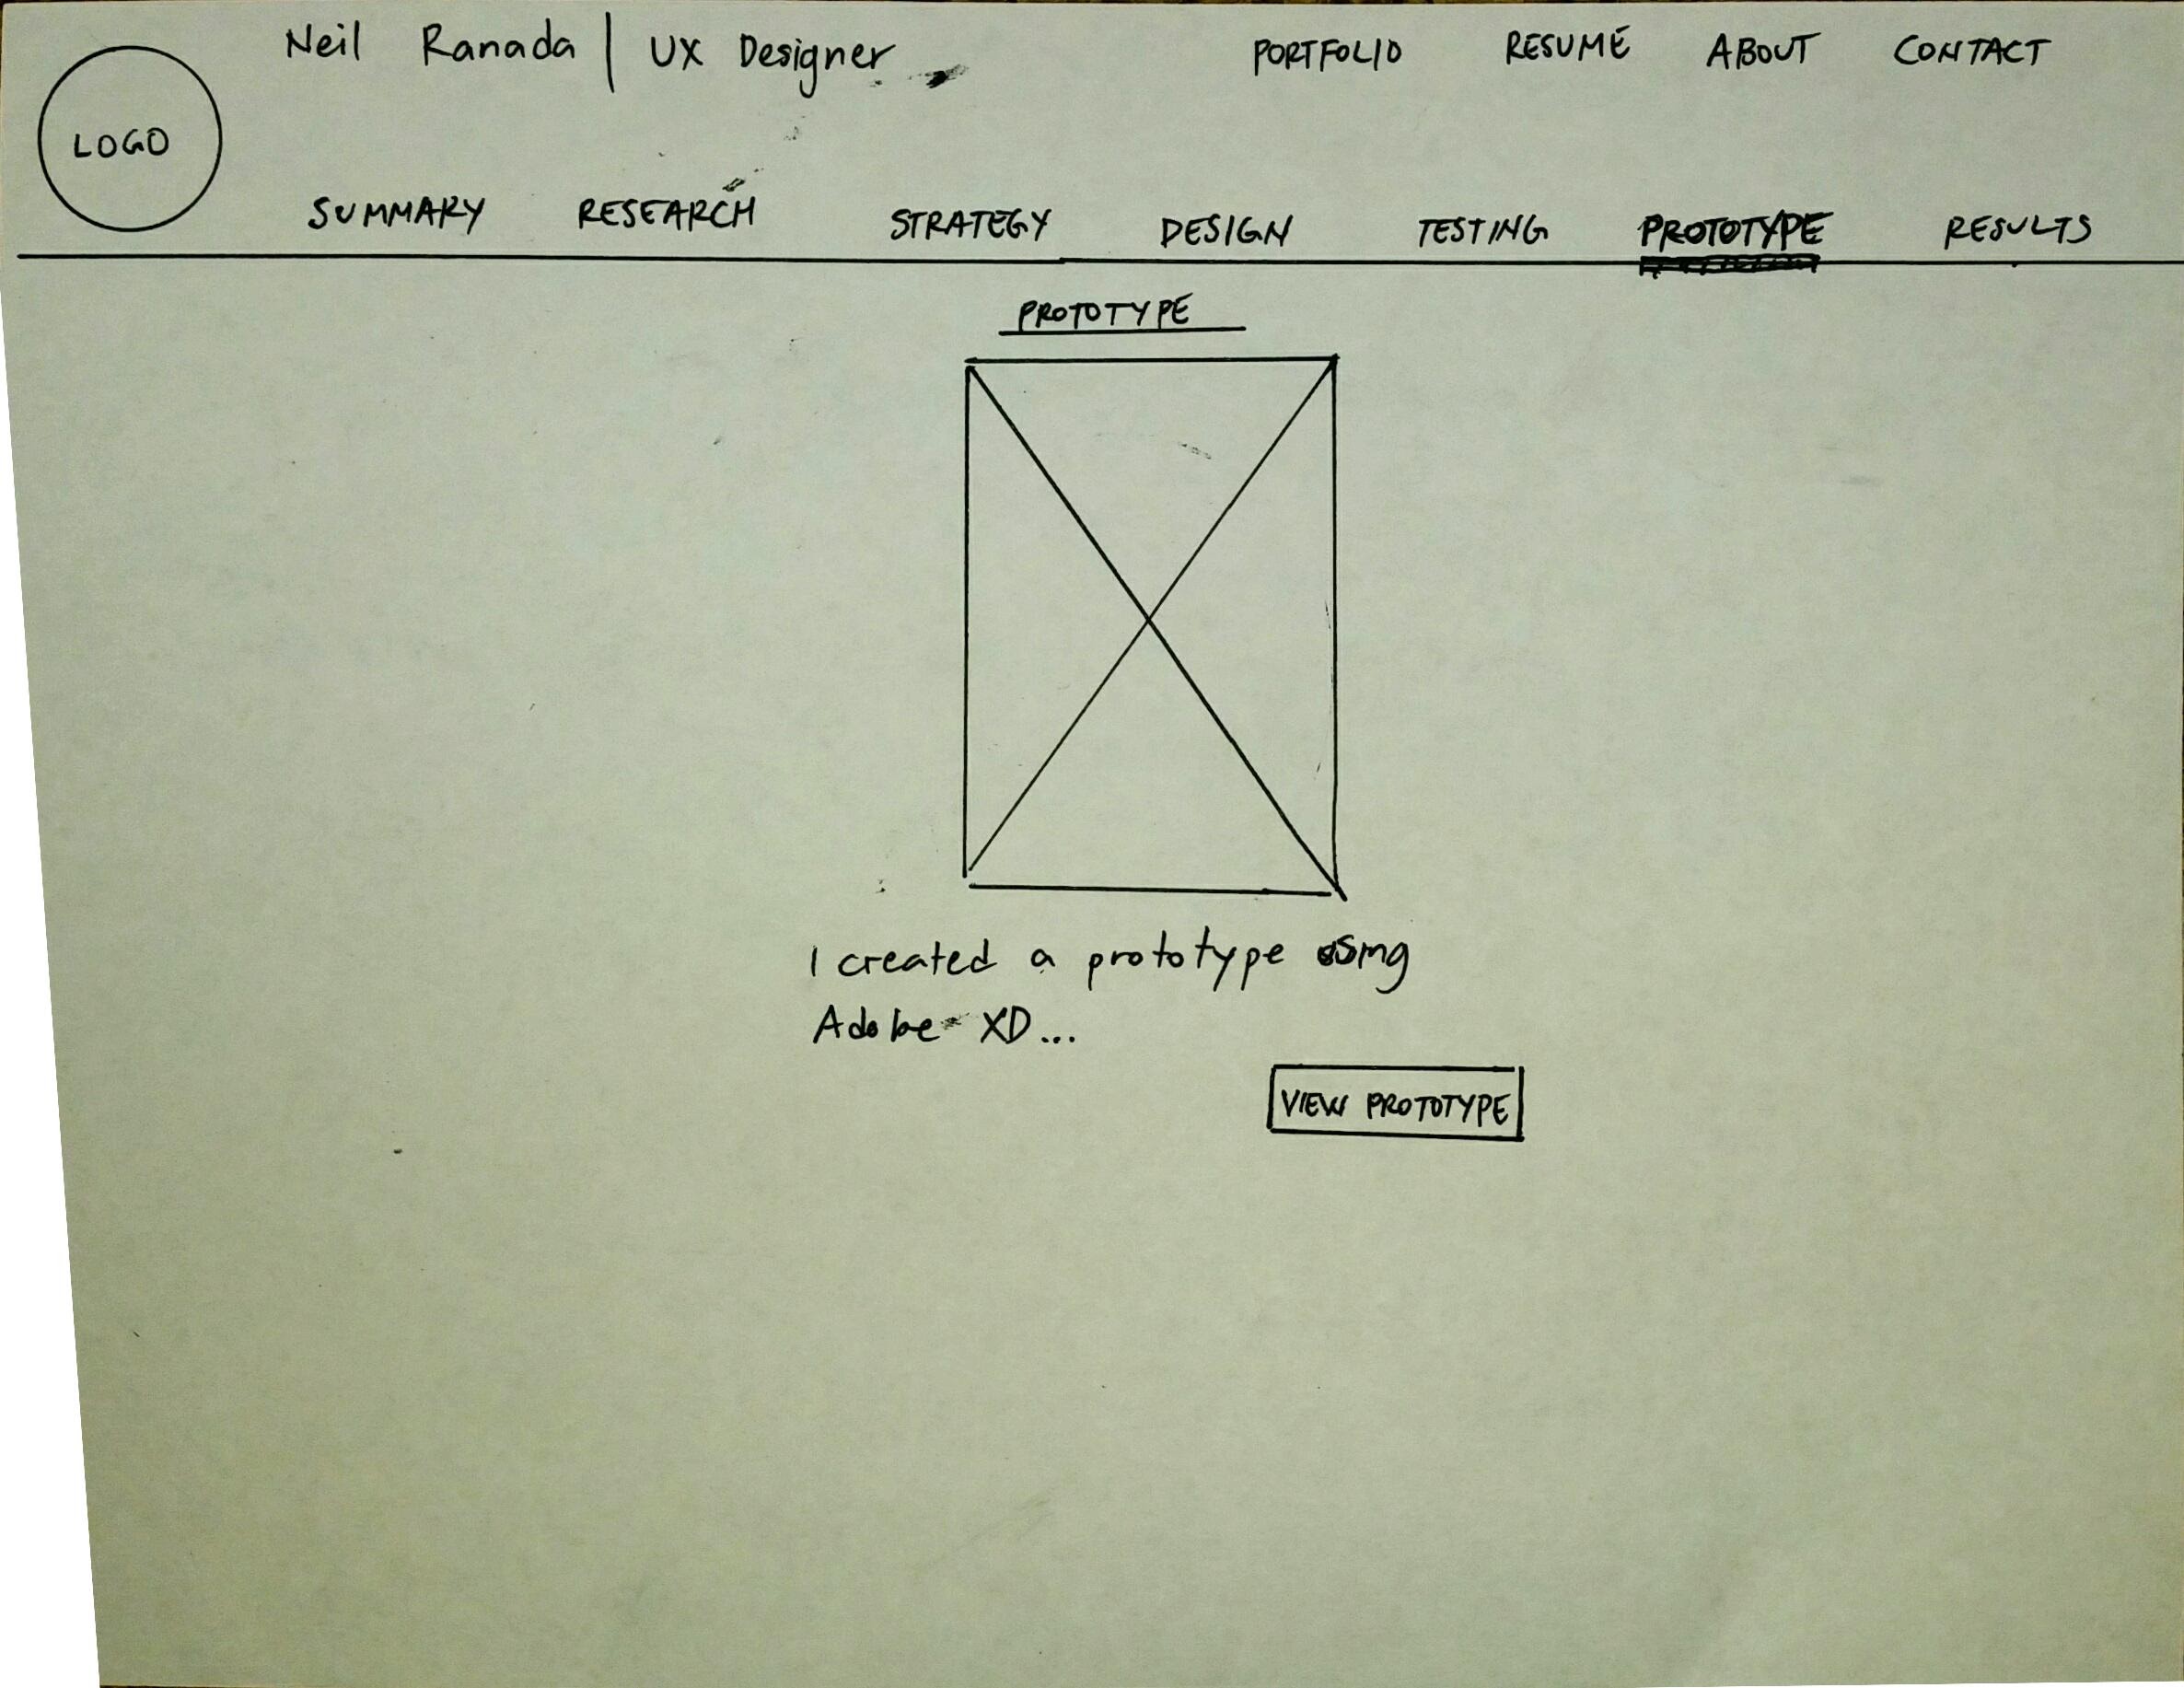 Neil Ranada | UX Designer
PORTFOLIO RESUME ABOUT CONTACT
LOGO
SUMMARY RESEARCH STRATEGY DESIGN TESTING PROTOTYPE RESULTS
PROTOTYPE
I created a prototype using
Adobe XD...
VIEW PROTOTYPE